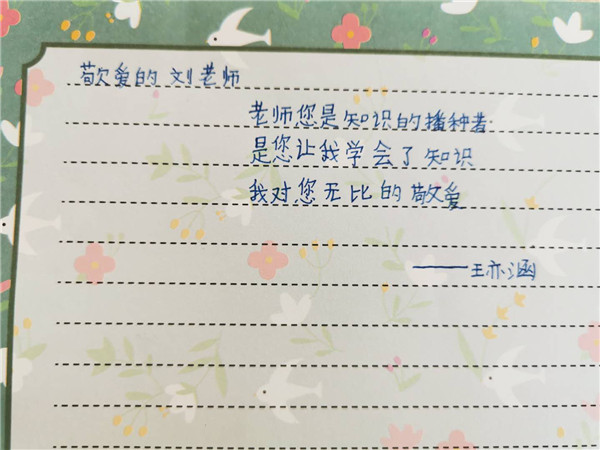 敬爱的 刘老师
老师您是知识的播种者.
是您让我学会了知识
我对您无比的敬爱
——王亦涵